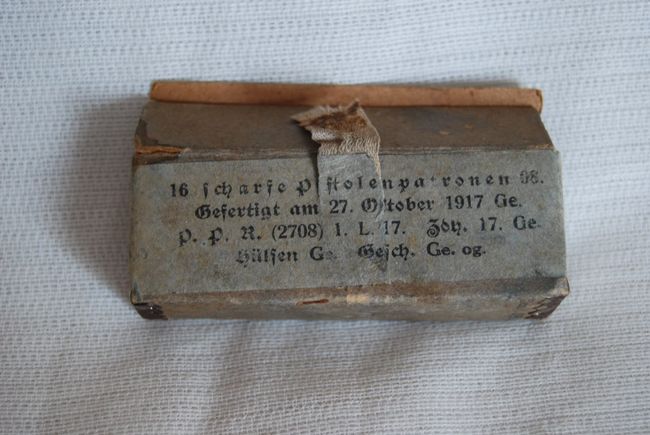 16 scharfe Pistolenpatronen 08.
Gefertigt am 27. Oktober 1917 Ge.
P. P. R. (2708) 1. L. 17. Zdh. 17. Ge
Hülsen Ge. Gesch. Ge. og.